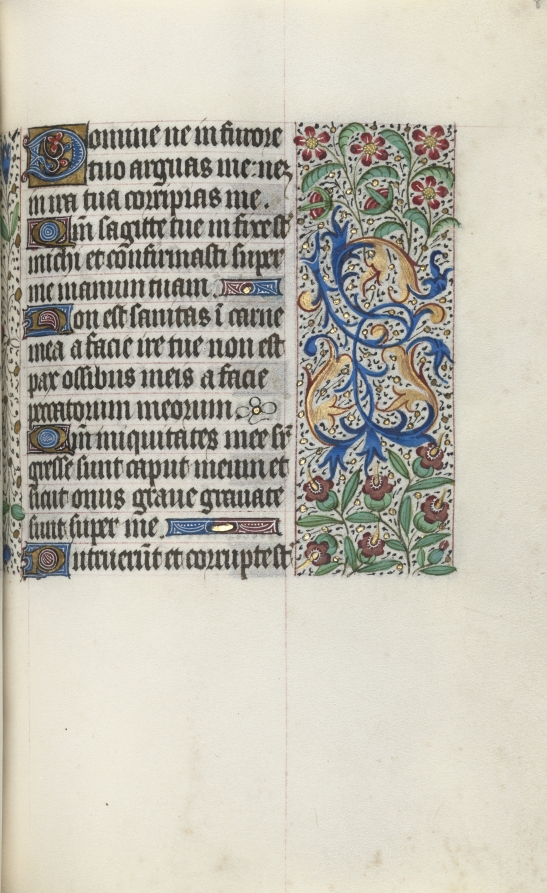 Domine ne in furore
tuo arguas me: neqz
in ira tua corripias me.
Qm̄ sagitte tue in fixe st̄
michi et cōfirmasti super
me manum tuam
Non est sanitas ī carne
mea a facie ire tue non est
pax ossibus meis a facie
peccatorum meorum
Qm̄ iniquitates mee su
gresse sunt caput meum et
sicut onus graue grauate
sunt super me
Putruerūt et corrupte st̄